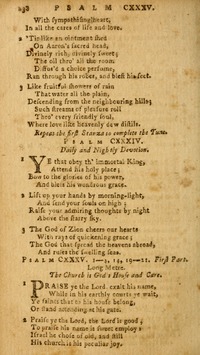 298 PSALM CXXXV.
With sympathising heart,
In all the cares of life and love.
2 'Tis like an ointment shed
On Aaron's sacred head,
Divinely rich, divinely sweet;
The oil thro' all the room,
Diffus'd a choice perfume,
Ran through his robes, and blest his feet.
3 Like fruitful showers of rain
That water all the plain,
Descending from the neighbouring hills;
Such streams of pleasure roll
Thro' every friendly soul,
Where love like heavenly dew distils.
Repeat the first Stanza to complete the Tune.
PSALM CXXXIV.
Daily and Nightly Devotion.
1 YE that obey th' immortal King,
Attend his holy place;
Bow to the glories of his power,
And bless his wondrous grace.
2 Lift up your hands by morning-light,
And send your souls on high;
Raise your admiring thoughts by night
Above the starry sky.
3 The God of Zion cheers our hearts
With rays of quickening grace;
The God that spread the heavens abroad,
And rules the swelling seas.
PSALM CXXXV. 1—3, 14, 19—21. First Part.
Long Metre.
The Church is God's House and Care.
1 PRAISE ye the Lord, exalt his name,
While in his earthly courts ye wait,
Ye saints that to his house belong,
Or stand attending at his gate.
2 Praise ye the Lord, the Lord is good;
To praise his name is sweet employ:
Israel he chose of old, and still
His church is his peculiar joy.